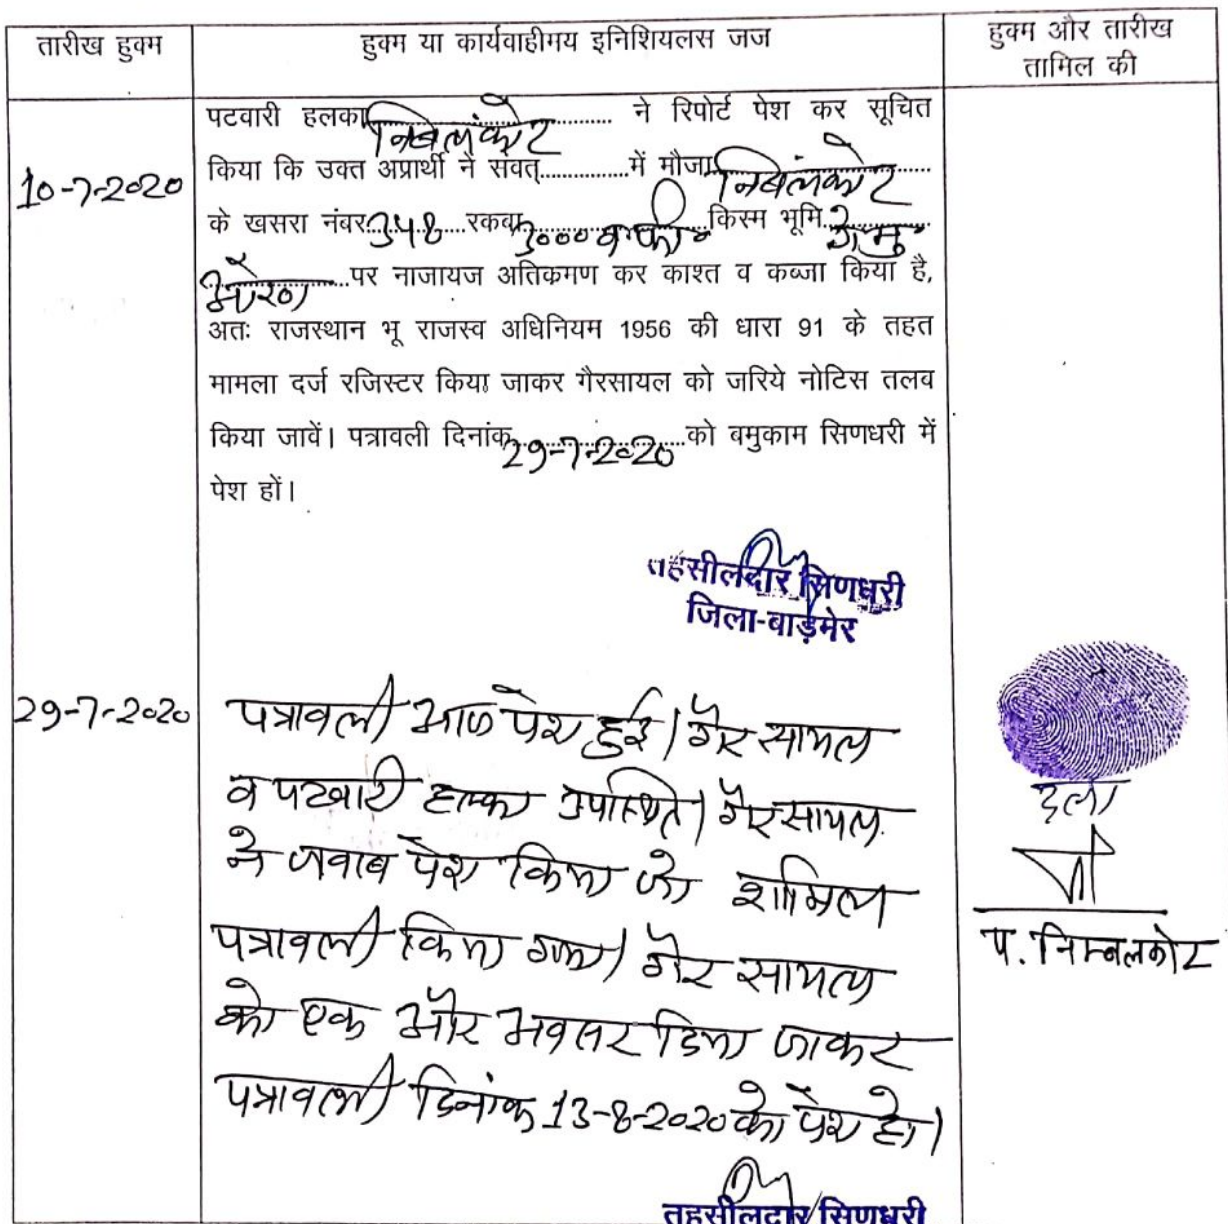 तारीख हुक्म
हुक्म या कार्यवाहीमय इनिशियलस जज
हुक्म और तारीख
तामिल की
10-7-2020
पटवारी हलका निबलंकोट ने रिपोर्ट पेश कर सूचित
किया कि उक्त अप्रार्थी ने संवत्...............में मौजा निबलंकोट
के खसरा नंबर 348 रकबा 3000 व.फी. किस्म भूमि गै.मु.
ओरण पर नाजायज अतिकमण कर काश्त व कब्जा किया है,
अतः राजस्थान भू राजस्व अधिनियम 1956 की धारा 91 के तहत
मामला दर्ज रजिस्टर किया जाकर गैरसायल को जरिये नोटिस तलव
किया जावें। पत्रावली दिनांक 29-7-2020 को बमुकाम सिणधरी में
पेश हों।
तहसीलदार सिणधरी
जिला-बाड़मेर
29-7-2020
पत्रावली आज पेश हुई। गैर सायल
व पटवारी हल्का उपस्थित। गैर सायल
ने जवाब पेश किया जो शामिल
पत्रावली किया गया। गैर सायल
को एक और अवसर दिया जाकर
पत्रावली दिनांक 13-8-2020 को पेश हो।
दला
प. निम्बलकोट
तहसीलदार सिणधरी